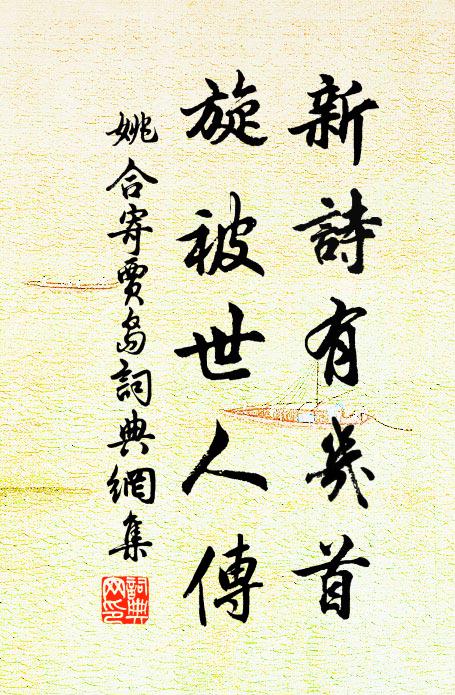 新詩有幾首
旋被世人傳
姚合寄賈島詞典網集
詞典網印